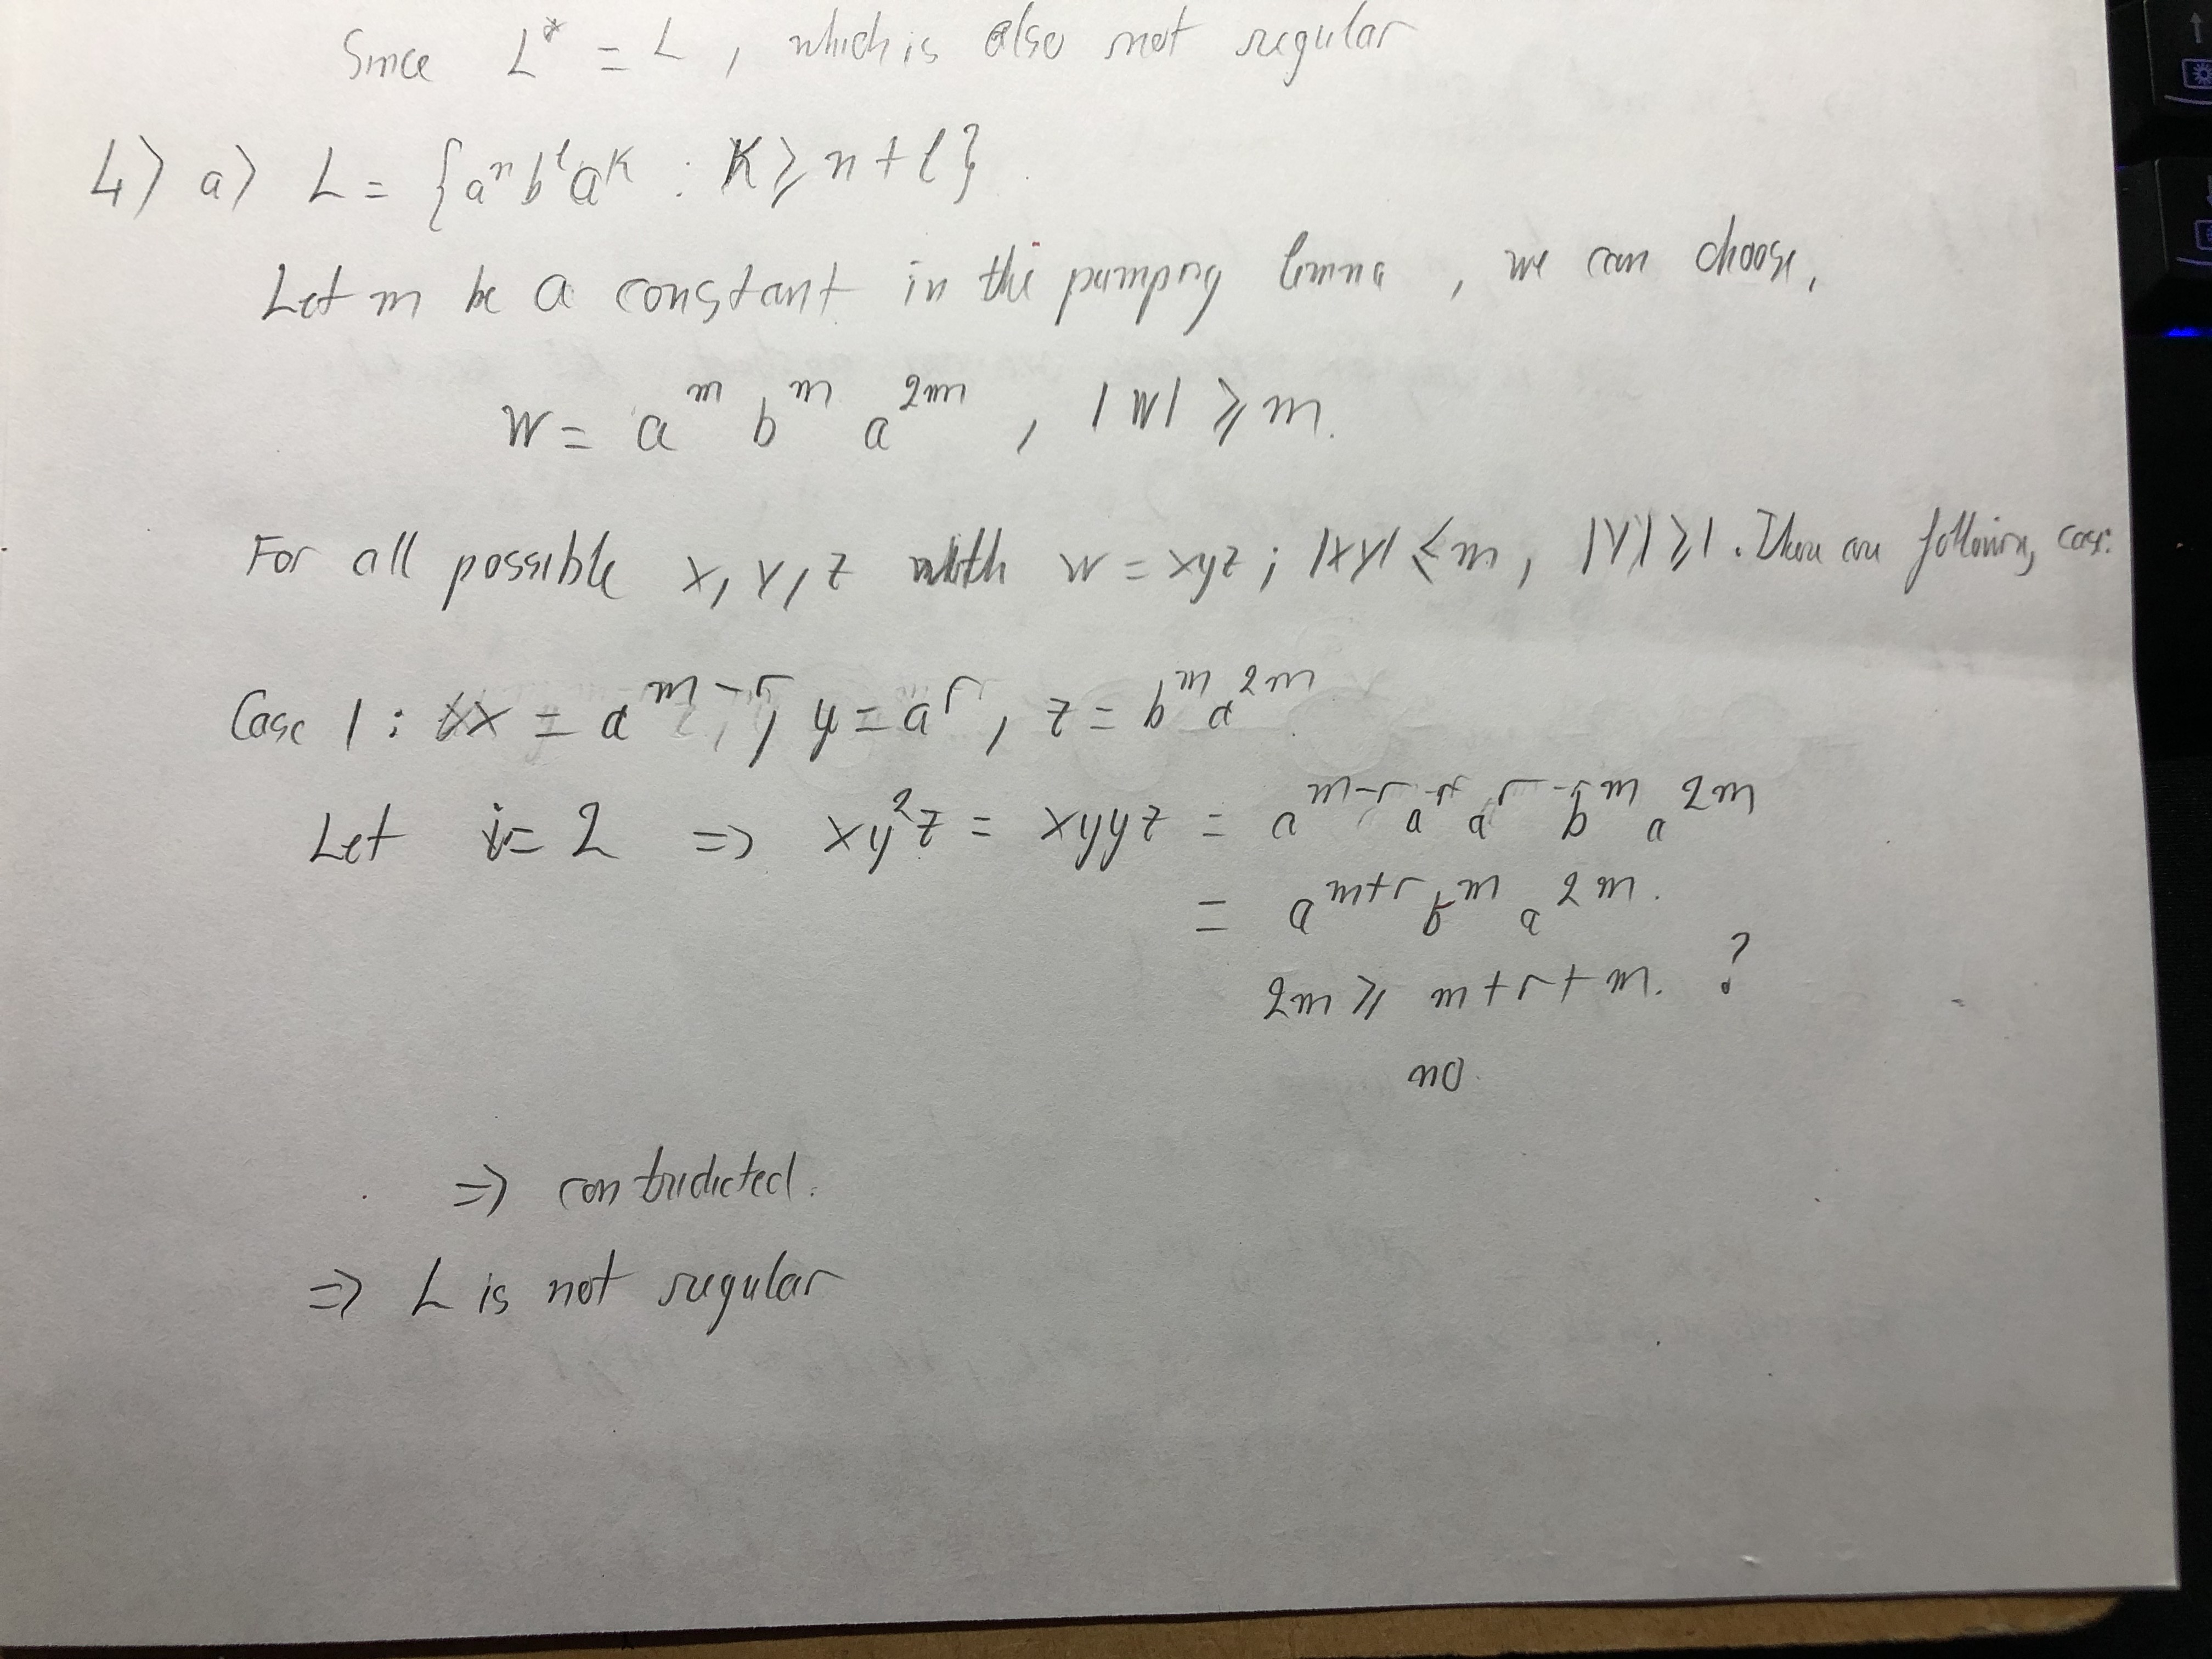 Since L* = L, which is also not regular
4) a) L = {aⁿbˡaᴷ : K ≥ n + l}
Let m be a constant in the pumping lemma, we can choose,
W = a^m b^m a^2m, |W| ≥ m.
For all possible x, y, z with w = xyz; |xy| ≤ m, |y| ≥ 1. There are following case:
Case 1: x = a^m-r, y = a^r, z = b^m a^2m
Let i = 2 => xy²z = xyyz = a^m-r a^r a^r b^m a^2m
= a^m+r b^m a^2m.
2m ≥ m+r+m. ?
no
=> contridicted.
=> L is not regular